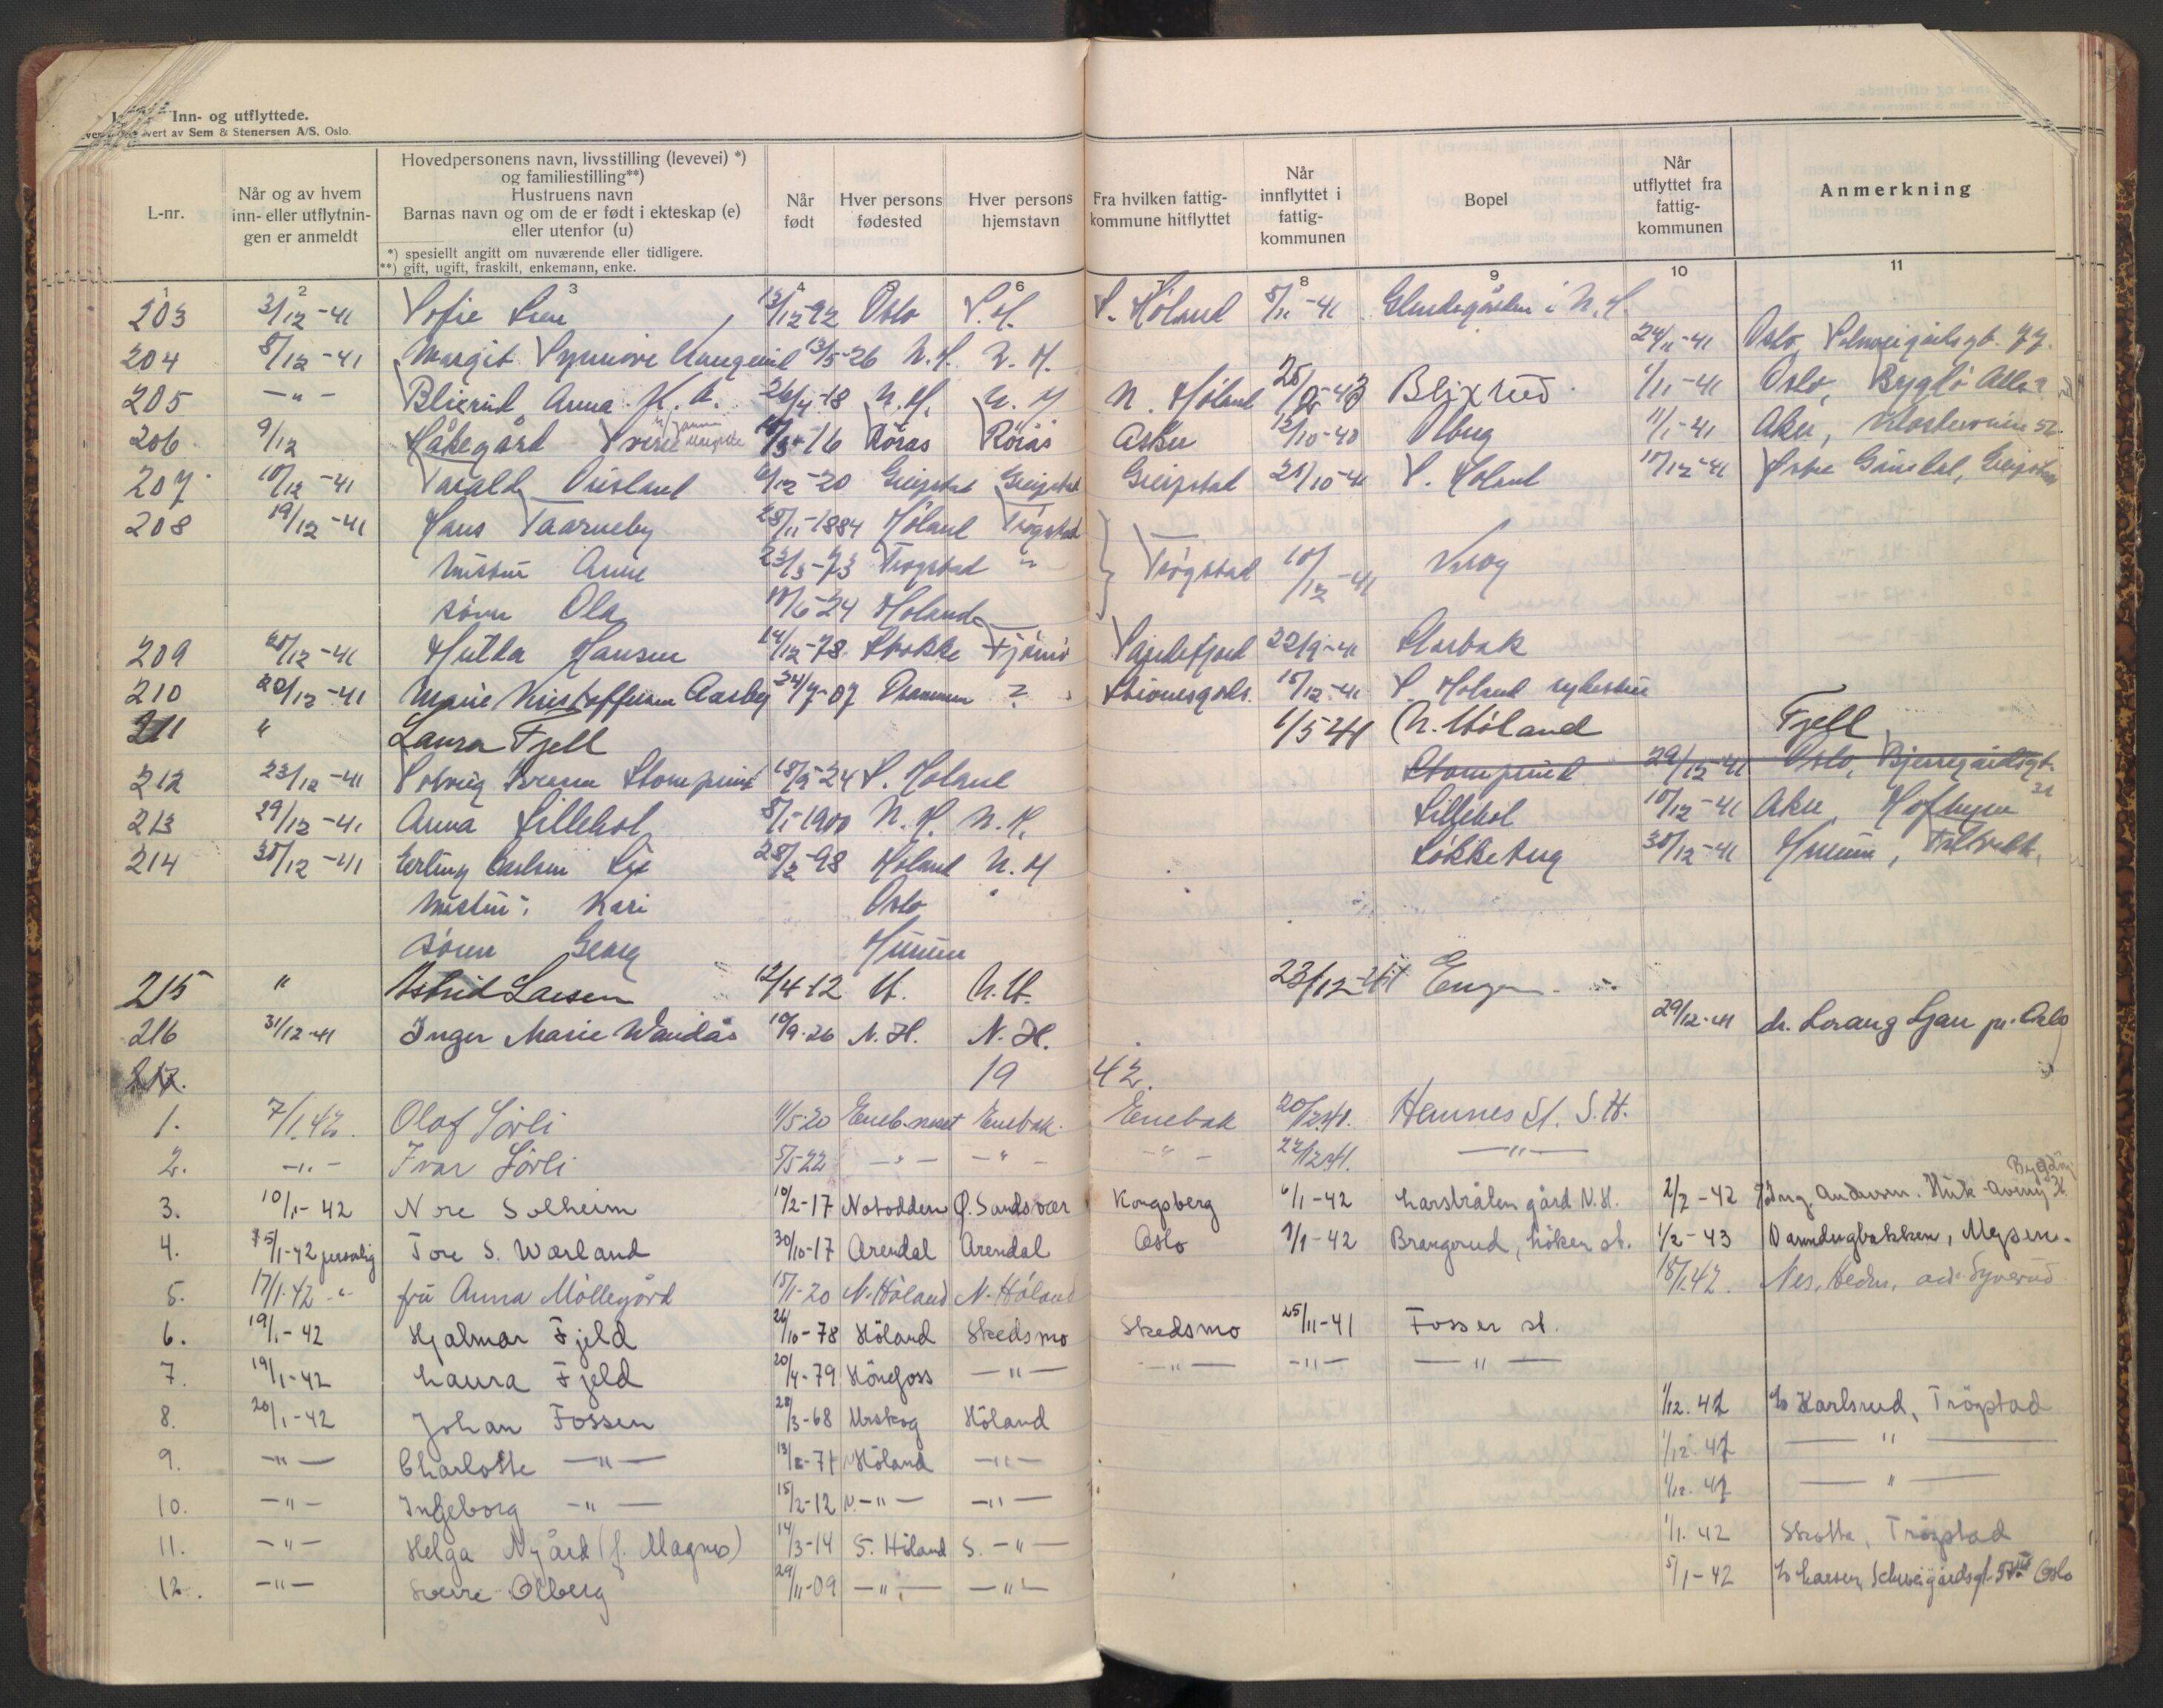 Inn- og utflyttede.
Sem & Stenersen A/S, Oslo.
L-nr.
Når og av hvem inn- eller utflytnin-gen er anmeldt
Hovedpersonens navn, livsstilling (levevei) *) og familiestilling**)
Hustruens navn
Barnas navn og om de er født i ekteskap (e) eller utenfor (u)
*) spesiellt angitt om nuværende eller tidligere.
**) gift, ugift, fraskilt, enkemann, enke.
Når født
Hver persons fødested
Hver persons hjemstavn
Fra hvilken fattig-kommune hitflyttet
Når innflyttet i fattig-kommunen
Bopel
Når utflyttet fra fattig-kommunen
Anmerkning
1 2 3 4 5 6 7 8 9 10 11
203 3/12-41 Sofie 13/12-92 Oslo S.H. S. Höland 5/11-41 i N.H.
204 8/12-41 Margit Synnöve 13/5-26 N.H. N.H. 24/11-41 Oslo
205 -"- Blixrud Anna K. A. 26/4-18 N.H. N.H. N. Höland Blixrud 1/11-41 Oslo, Bygdö Alle
206 9/12 Håkegård Sverre 16 Röros Röros Asker 12/10-40 11/1-41 Aker,
207 10/12-41 Greipstad Greipstad Greipstad 21/10-41 S. Höland 10/12-41
208 19/12-41 Hans Taarneby 28/11-1884 Höland Trögstad
hustru Anne 23/3-73 Trögstad " Trögstad 10/12-41 Krog
sönn Ola 10/6-24 Höland
209 20/12-41 Hulda Hansen 14/12-78 Stokke Tjömö Sandefjord 22/9-41
210 20/12-41 Marie Kristoffersen Aasby 24/7-07 Drammen ? 15/12-41 S. Höland sykestue
211 " Laura Fjell 1/5 41 N. Höland Fjell
212 23/12-41 Solveig Stomprud 18/9-24 S. Höland Stomprud 29/12-41 Oslo, Bjerregårdsgt.
213 29/12-41 Anna Lillehol 8/1-1900 N.H. N.H. Lillehol 10/12-41 Aker,
214 30/12-41 Erling Carlsen Lie 28/2-98 Höland N.H 30/12-41 Hurum,
hustru: Kari Oslo "
sönn Georg Hurum
215 " Astrid Larsen 12/4-12 H. N.H. 23/12-41 Enger
216 31/12-41 Inger Marie Wandås 10/9-26 N.H. N.H. 29/12-41 dr. Lorang Ljan pr. Oslo
217. 19 42.
1. 7/1.42. Olof Sörli 11/5-20 Eneb.neset Enebak Enebak 20/12.41. Hemnes st. S.H.
2. -"- Ivar Sörli 5/5-22 -"- -"- -"- 22/12.41. -"-
3. 10/1-42 Nore Solheim 10/2-17 Notodden Ö. Sandsvær Kongsberg 6/1-42 Larsbråten gård N.H. 2/2-42 Ing. Andersen. Huk Aveny Bygdöy
4. 15/1-42 personlig Tore S. Wærland 30/10-17 Arendal Arendal Oslo 7/1-42 Brangerud, Löken st. 1/2-43 Damdugbakken, Mysen.
5. 17/1.42 -"- fru Anna Möllegård 15/1-20 N. Höland N. Höland 18/1.42. Nes, Hedm, adr. Syverud
6. 19/1-42 Hjalmar Fjeld 24/10-78 Höland Skedsmo Skedsmo 25/11-41 Fosser st.
7. 19/1-42 Laura Fjeld 20/4-79 Hönefoss -"- -"- -"- -"-
8. 20/1-42 Johan Fossen 28/3-68 Urskog Höland 1/12.42 Karlsrud, Trögstad
9. -"- Charlotte -"- 13/8-71 N Höland -"- 1/12.42 -"-
10. -"- Ingeborg -"- 15/2-12 N. -"- -"- 1/12.42 -"-
11. -"- Helga Nygård (f. Magnus) 14/3-14 S. Höland S. -"- 1/1.42 Skotta, Trögstad
12. -"- Sverre Olberg 29/11-09 -"- -"- 5/1-42 Larsen, Schweigårdsgt. Oslo